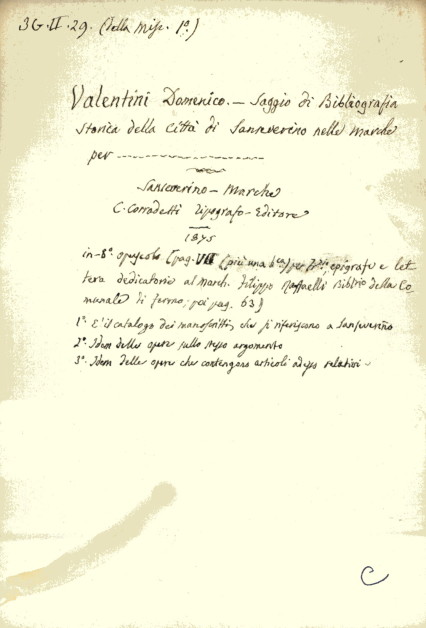 3G.II.29. (della Misc. 1ª.)
Valentini Domenico. — Saggio di Bibliografia
Storica della Città di Sanseverino nelle Marche
per
Sanseverino - Marche
C. Corradetti Tipografo-Editore
1875
in-8º opuscolo (pag. VII (più una bca) per epigrafe e let
tera dedicatoria al March. Filippo Raffaelli Biblrio della Co-
munale di Fermo; poi pag. 63)
1º. È il catalogo dei manoscritti, che si riferiscono a Sanseverino
2º. Idem delle opere sullo stesso argomento
3º. Idem delle opere che contengono articoli ad esso relativi
C